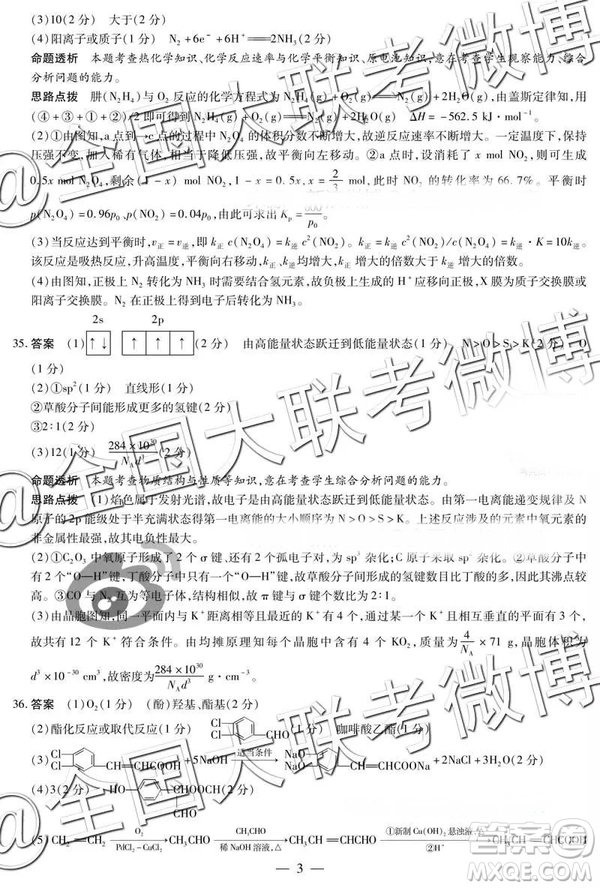 (3)10(2 分)　大于(2 分)
(4)阳离子或质子(1 分)　N₂+6e⁻+6H⁺══2NH₃(2 分)
命题透析　本题考查热化学知识、化学反应速率与化学平衡知识、原电池知识,意在考查学生观察能力、综合
分析问题的能力。
思路点拨　肼(N₂H₄)与 O₂ 反应的化学方程式为 N₂H₄(g)+O₂(g)══N₂(g)+2H₂O(g),由盖斯定律知,用
(④+③+①)/2 即可得出 (g)══N₂H₄(g)　ΔH=−562.5 kJ·mol⁻¹。
(2)①由图知,a 点到 c 点的过程中 N₂O₄ 的体积分数不断增大,故逆反应速率不断增大。一定温度下,保持
压强不变,加入稀有气体,相当于降低压强,故平衡向左移动。②a 点时,设消耗了 x mol NO₂,则可生成
0.5x mol N₂O₄,剩余(1−x) mol NO₂,1−x=0.5x,x=2/3,故此时 NO₂ 的转化率为 66.7%。平衡时
p(N₂O₄)=0.96p₀,p(NO₂)=0.04p₀,由此可求出 Kₚ=600/p₀
(3)当反应达到平衡时,v正=v逆,即 k正 c(N₂O₄)=k逆 c²(NO₂),k正=k逆 c²(NO₂)/c(N₂O₄)=k逆·K=10k逆。
该反应是吸热反应,升高温度,平衡向右移动,k正、k逆均增大,但k正增大的倍数大于k逆增大的倍数。
(4)由图知,正极上 N₂ 转化为 NH₃ 时需要结合氢元素,故负极上生成的 H⁺应移向正极,X 膜为质子交换膜或
阳离子交换膜。N₂ 在正极上得到电子后转化为 NH₃。
2s　2p
35.答案　(1)↑↓　↑ ↑ ↑(2 分)　由高能量状态跃迁到低能量状态(1 分)　N>O>S>K(2 分)　O
(1 分)
(2)①sp²(1 分)　直线形(1 分)
②草酸分子间能形成更多的氢键(2 分)
③2∶1(2 分)
(3)12(1 分)　284×10³⁰/N_A d³(2 分)
命题透析　本题考查物质结构与性质等知识,意在考查学生综合分析问题的能力。
思路点拨　(1)焰色属于发射光谱,故电子是由高能量状态跃迁到低能量状态。由第一电离能递变规律及 N
原子的 2p 能级处于半充满状态知,第一电离能的大小顺序为 N>O>S>K。上述反应涉及的元素中氧元素的
非金属性最强,其电负性最大。
(2)①C₂O₃ 中氧原子形成了 2 个 σ 键,还有 2 个孤电子对,为 sp³ 杂化;C 原子采取 sp² 杂化。②草酸分子中
有 2 个"O—H"键,丁酸分子中只有一个"O—H"键,故草酸分子间形成的氢键数目比丁酸的多,因此其沸点较
高。③由于 CO 与 N₂ 互为等电子体,故 π 键与 σ 键个数比为 2∶1。
(3)由晶胞图知,同一平面内与 K⁺距离相等且最近的 K⁺共有 4 个,通过某一 K⁺且相互垂直的平面有 3 个,
故共有 12 个 K⁺符合条件。由均摊原理知每个晶胞中共有 4 个 KO₂,质量为 4/N_A×71 g,一个晶胞的体积为
d³×10⁻³⁰ cm³,故密度为 284×10³⁰/N_A d³。
36.答案　(1)O₂(1 分)　(酚)羟基、酯基(2 分)
(2)酯化反应或取代反应(1 分)　Cl Cl CHO(1 分)　咖啡酸乙酯(1 分)
(3)Cl Cl CH══CHCOOH+5NaOH 适当条件 NaO NaO CH══CHCOONa+2NaCl+3H₂O(2 分)
(4)3(2 分)　HCOO OOCH(2 分)
(5)CH₂══CH₂ O₂ PdCl₂−CuCl₂ CH₃CHO CH₃CHO 稀 NaOH 溶液,△ CH₃CH══CHCHO ①新制 Cu(OH)₂ 悬浊液,△ ②H⁺ CH₃CH══CHCOOH
— 3 —
@全国大联考微博
@全国大联考微博
@全国大联考微博
答案圈
MXQE.COM